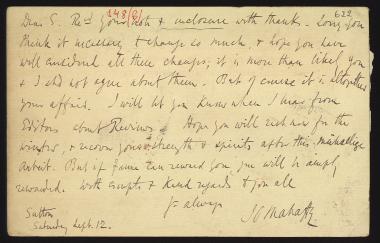 148(6)
622
Dear S. Recd your both & inclosure with thanks. Sorry you
think it necessary to change so much, & hope you have
well considered all these changes; it is more than likely you
& I did not agree about them. But of course it is altogether
your affair. I will let you know when I hear from
Editors about Reviews. Hope you will rest now for the
winter, & recover your strength & spirits after this
Arbeit. But if fame can reward you, you will be amply
rewarded. With & kind regards to you all
Yrs always
Sutton
J P Mahaffy
Saturday Sept. 12.